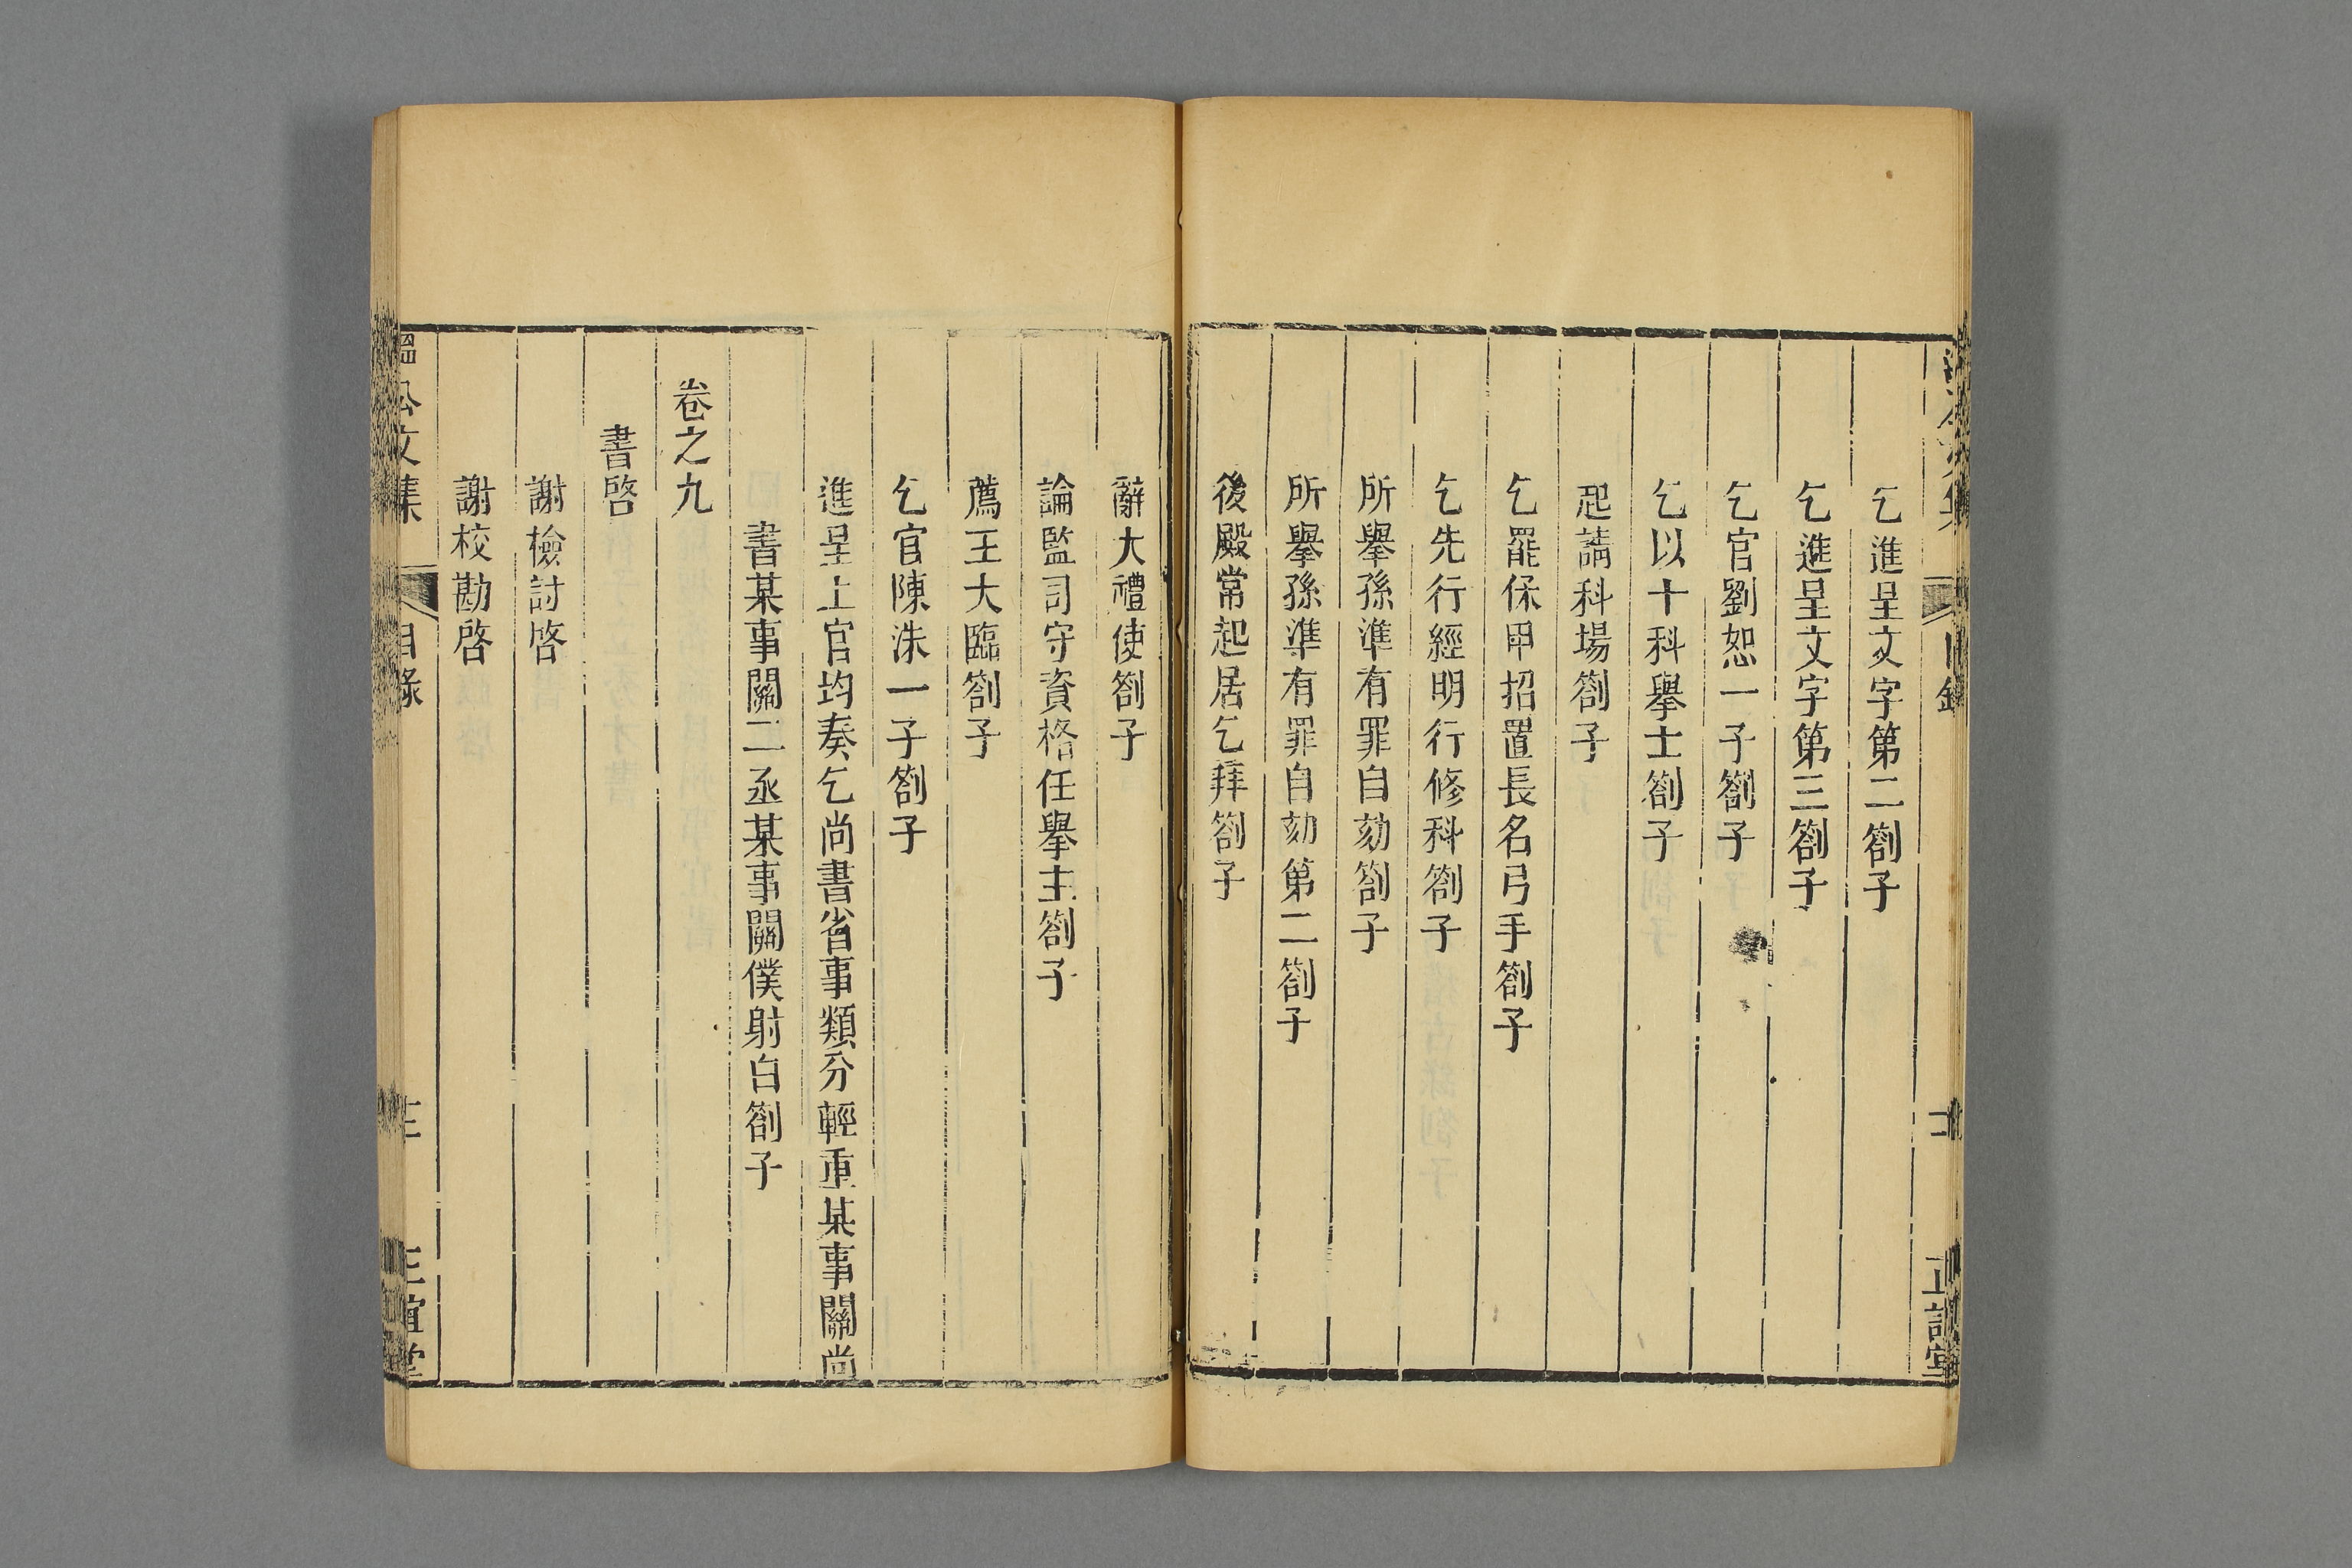 乞進呈文字第二劄子
乞進呈文字第三劄子
乞官劉恕一子劄子
乞以十科舉士劄子
起請科場劄子
乞罷保甲招置長名弓手劄子
乞先行經明行修科劄子
所舉孫準有罪自劾劄子
所舉孫準有罪自劾第二劄子
後殿常起居乞拜劄子
辭大禮使劄子
論監司守資格任舉主劄子
薦王大臨劄子
乞官陳洙一子劄子
進呈上官均奏乞尚書省事類分輕重某事關尚
書某事關二丞某事關僕射白劄子
卷之九
書啓
謝檢討啓
謝校勘啓
溫公文集 目錄 正誼堂